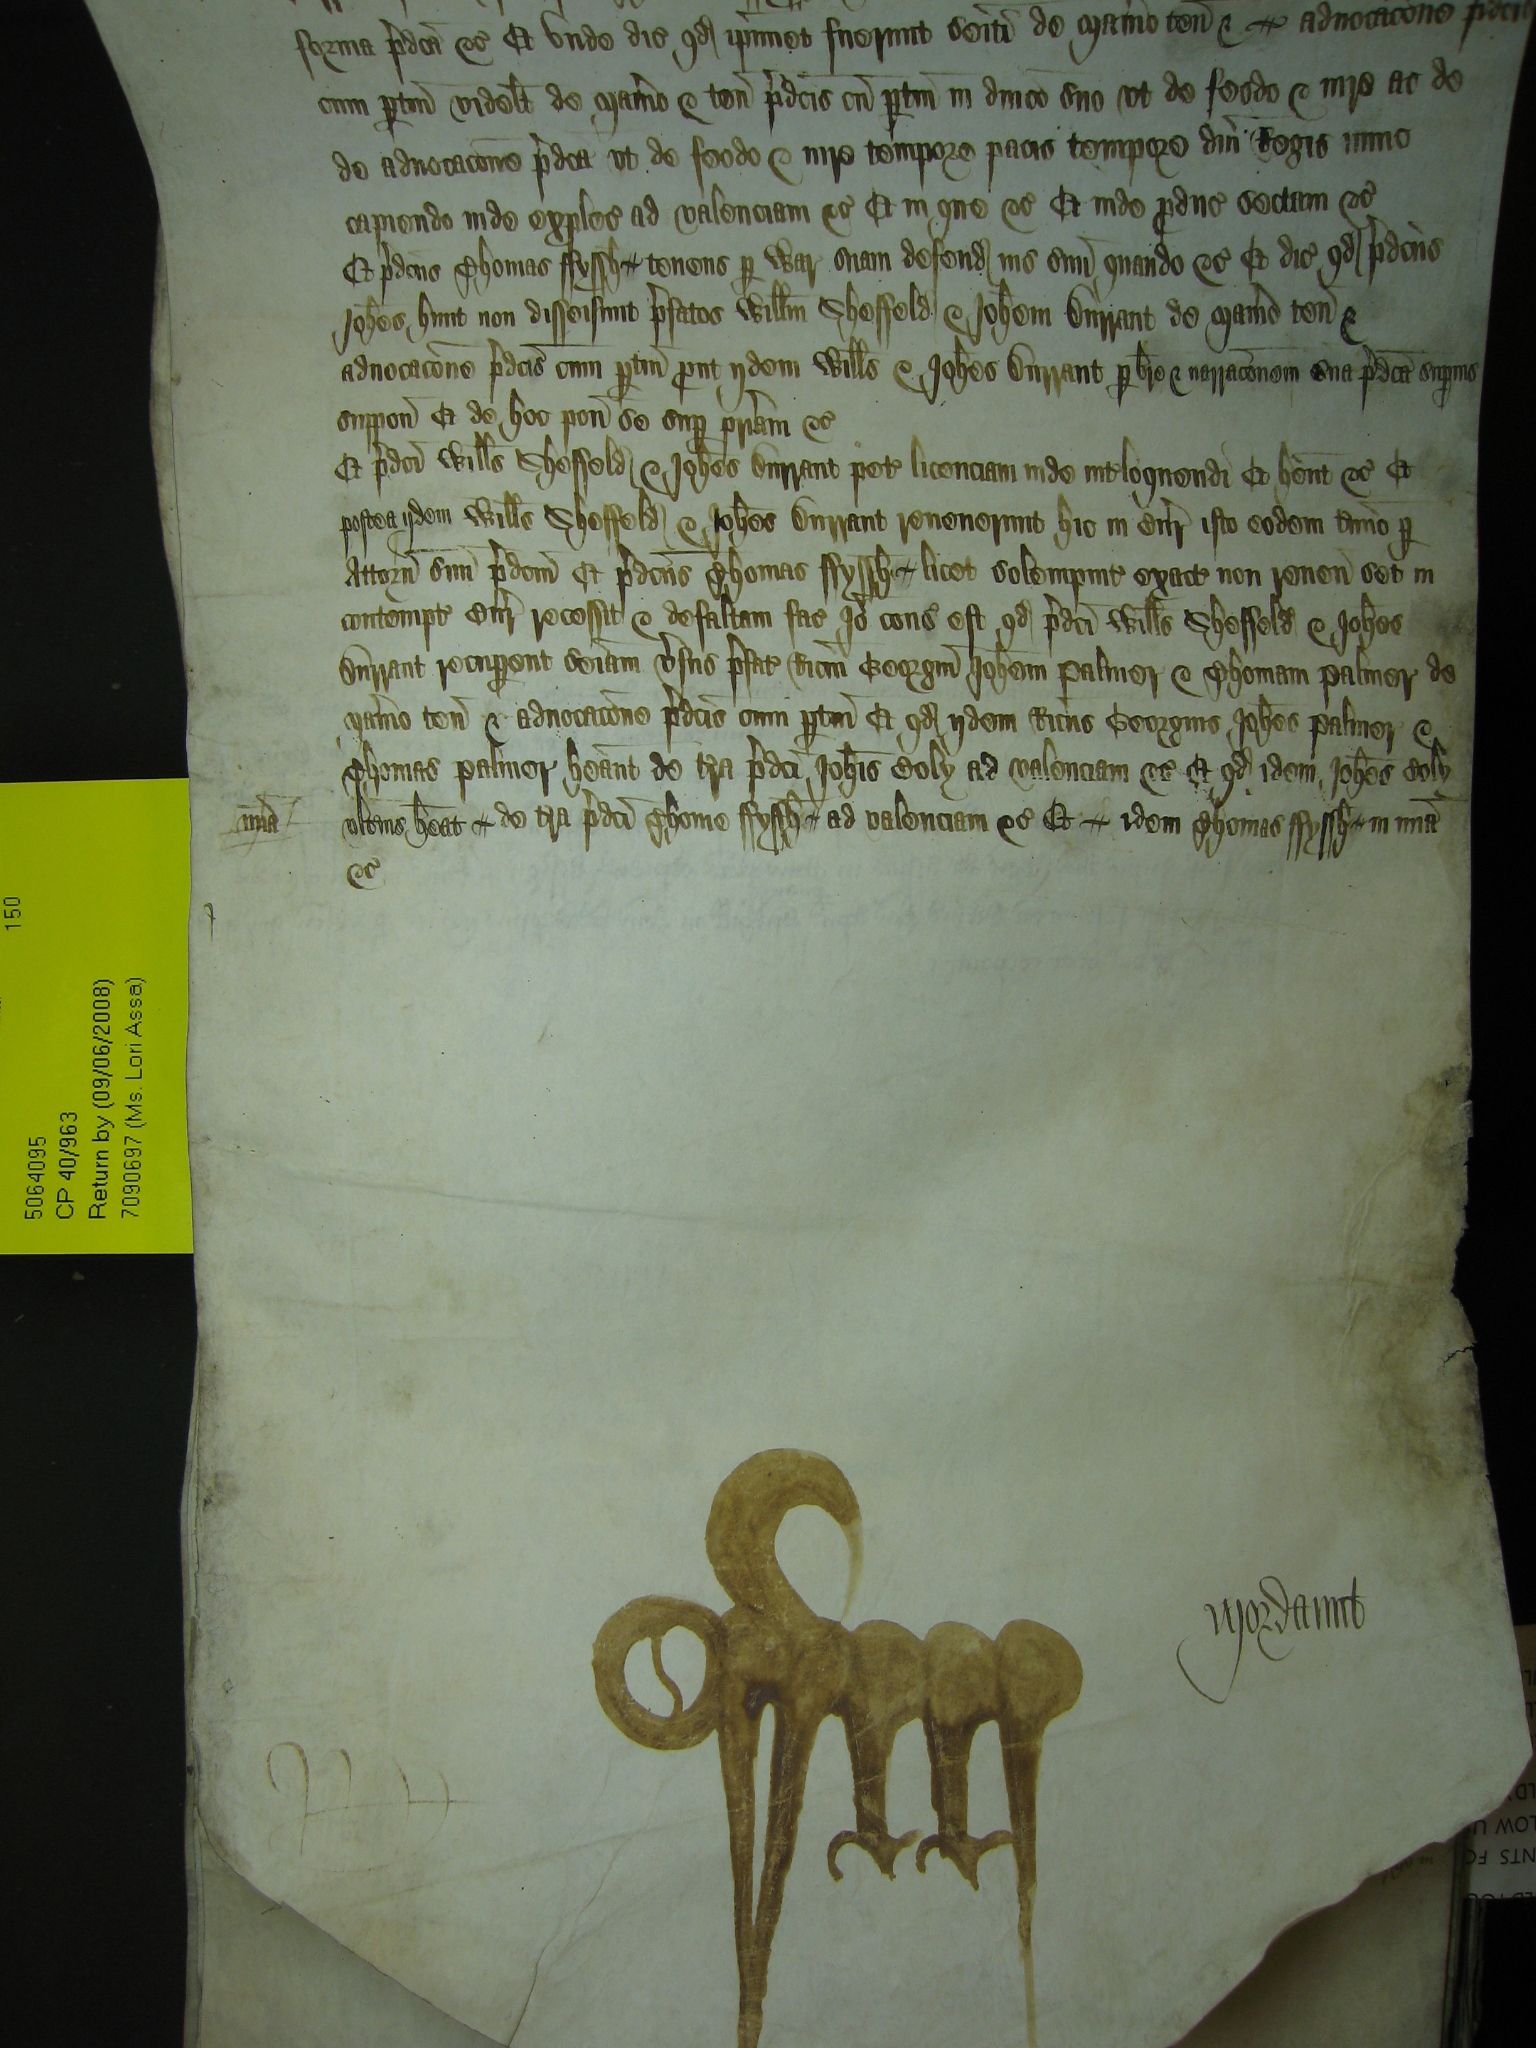 forma p̄dcā &c Et unde dic qd ip̄imet fuerunt seiti de Man̄io ten̄ & advocacōne p̄dcis
cum p̄tin̄ videlt de Man̄io & ten̄ p̄dcis cū p̄tin̄ in dnico suo ut de feodo & iure ac de
de advocacōne p̄dca ut de feodo & iure tempore pacis tempore dn̄i Regis nunc
capiendo inde exples ad valenciam &c Et in que &c Et inde p̄duc sectam &c
Et p̄dcus Thomas ffyssh tenens p̄ War suam defend ius suū quando &c Et dic qd p̄dcus
Joh̄es hunt non disseisiuit p̄fatos Will̄m Sheffeld & Joh̄em Durrant de Man̄io ten̄ &
advocacōne p̄dcis cum p̄tin̄ prout ijdem Will̄s & Joh̄es Durrant p̄ br̄e & narracōnem sua p̄dcā sup̄ius
suppon̄ Et de hoc pon̄ se sup̄ pr̄iam &c
Et p̄dci Will̄s Sheffeld & Joh̄es Durrant pet licenciam inde int̄loquendi Et hēnt &c Et
postea ijdem Will̄s Sheffeld & Joh̄es Durrant revenerunt hic in Cur̄ isto eodem t̄mio p̄
Attorn̄ suū p̄dcm̄ Et p̄dcus Thomas ffyssh licet solempnit exact non reven̄ set in
contempt Cur̄ recessit & defaltam fac Iō cons est qd p̄dci Will̄s Sheffeld & Joh̄es
Durrant recup̄ent seiām v̄sus p̄fat Ricm̄ Georgiū Joh̄em Palmer & Thomam Palmer de
Man̄io ten̄ & advocacōne p̄dcis cum p̄tin̄ Et qd ijdem Ricus Georgius Joh̄es Palmer &
Thomas Palmer heānt de t̄ra p̄dci Joh̄is Coly ad valenciam &c Et qd idem Joh̄es Coly
m̄ia ult̄ius h̄eat de t̄ra p̄dci Thome ffyssh ad valenciam &c Et idem Thomas ffyssh in m̄ia
&c
Mordaunt
150
5064095
CP 40/963
Return by (09/06/2008)
7090697 (Ms. Lori Assa)